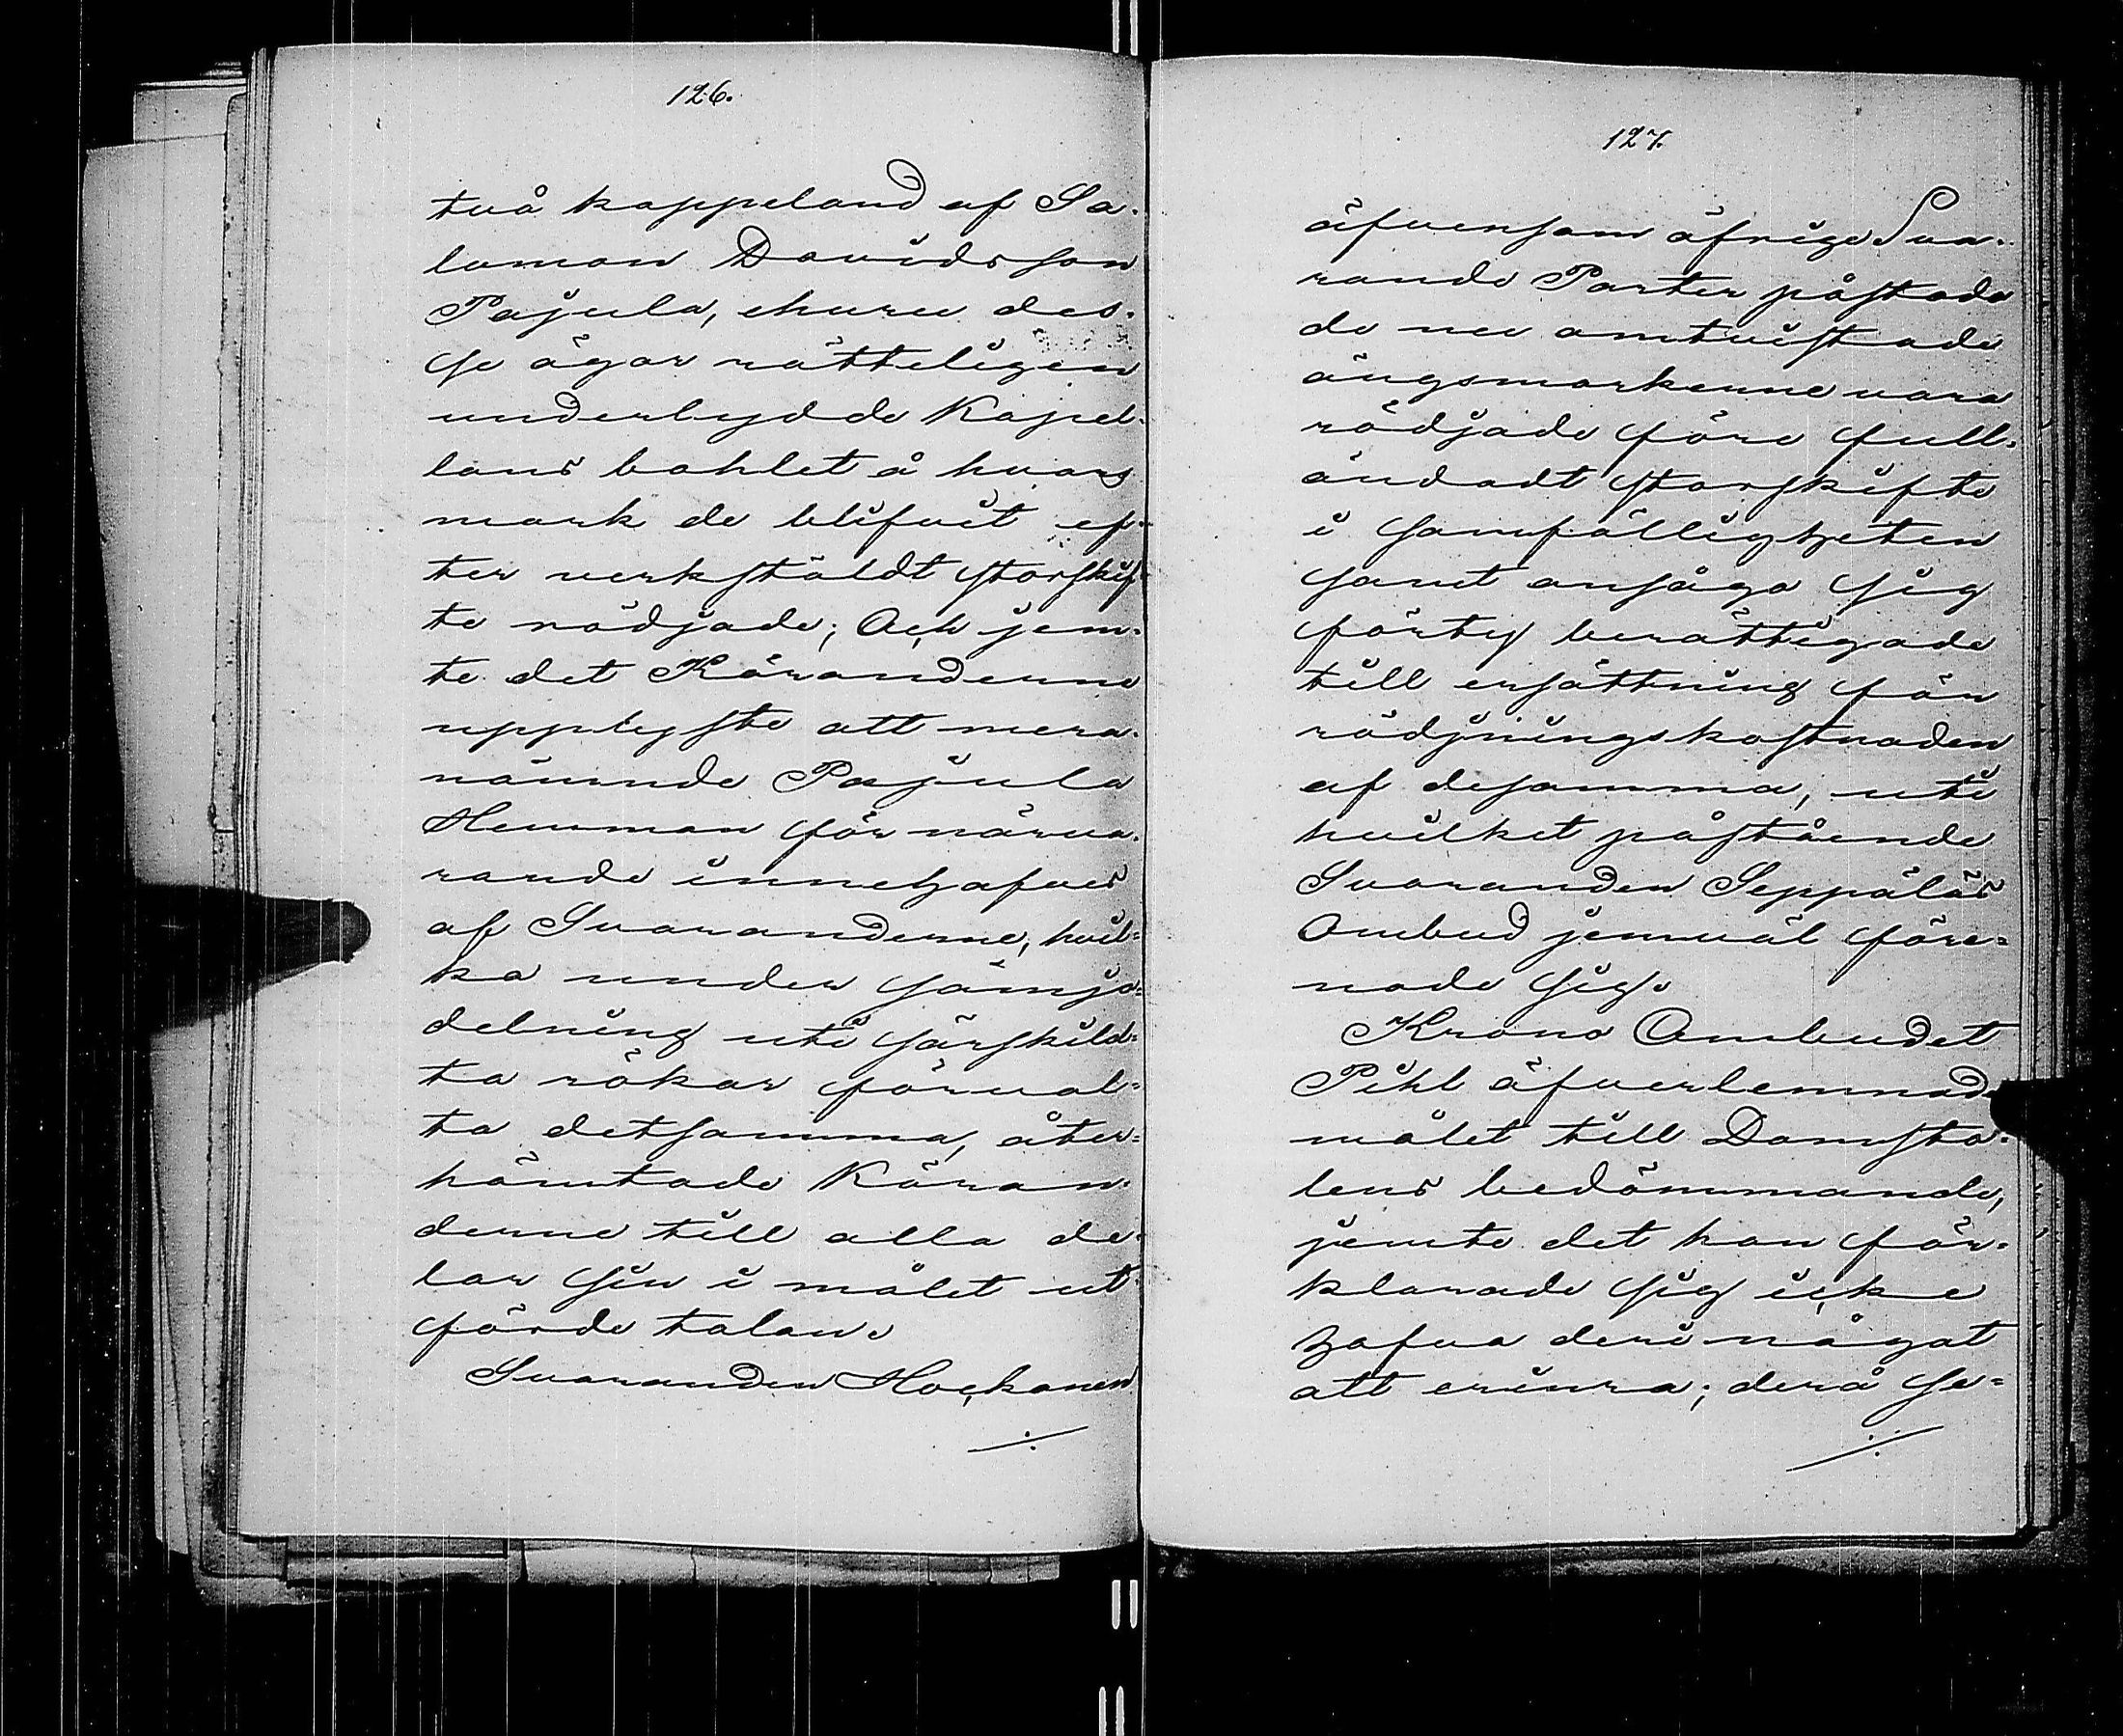 126.
två kappeland af Sa-
lomon Davidsson
Pajula, ehuru des-
se ägor rätteligen
underlydde Kapel-
lans bohlet å hvars
mark de blifvit ef-
ter verkstäldt storskif-
te rödjade; Och jem-
te det Käranderne
upplyste att mera-
nämnde Pajula
Hemman för närva-
rande innehafves
af Svaranderne, hvil-
ka under sämjo-
delning uti särskild-
ta rökar förval-
ta detsamma, åter-
hämtade Käran-
derne till alla de-
lar sin i målet ut-
förde talan.
Svaranden Hockanen
./.
127.
äfvensom öfrige Sva-
rande Parter påstodo
de nu omtvistade
ängsmarkerne vara
rödjade före full-
ändadt storskifte
i samfälligheten
samt ansågo sig
förty berättigade
till ersättning för
rödjningskostnaden
af desamma, uti
hvilket påstående
Svaranden Seppäläs
Ombud jemväl före-
nade sig.
Krono Ombudet
Pihl öfverlemnade
målet till Domsto-
lens bedömmande,
jemte det han för-
klarade sig icke
hafva deri något
att erinra; derå se-
./.